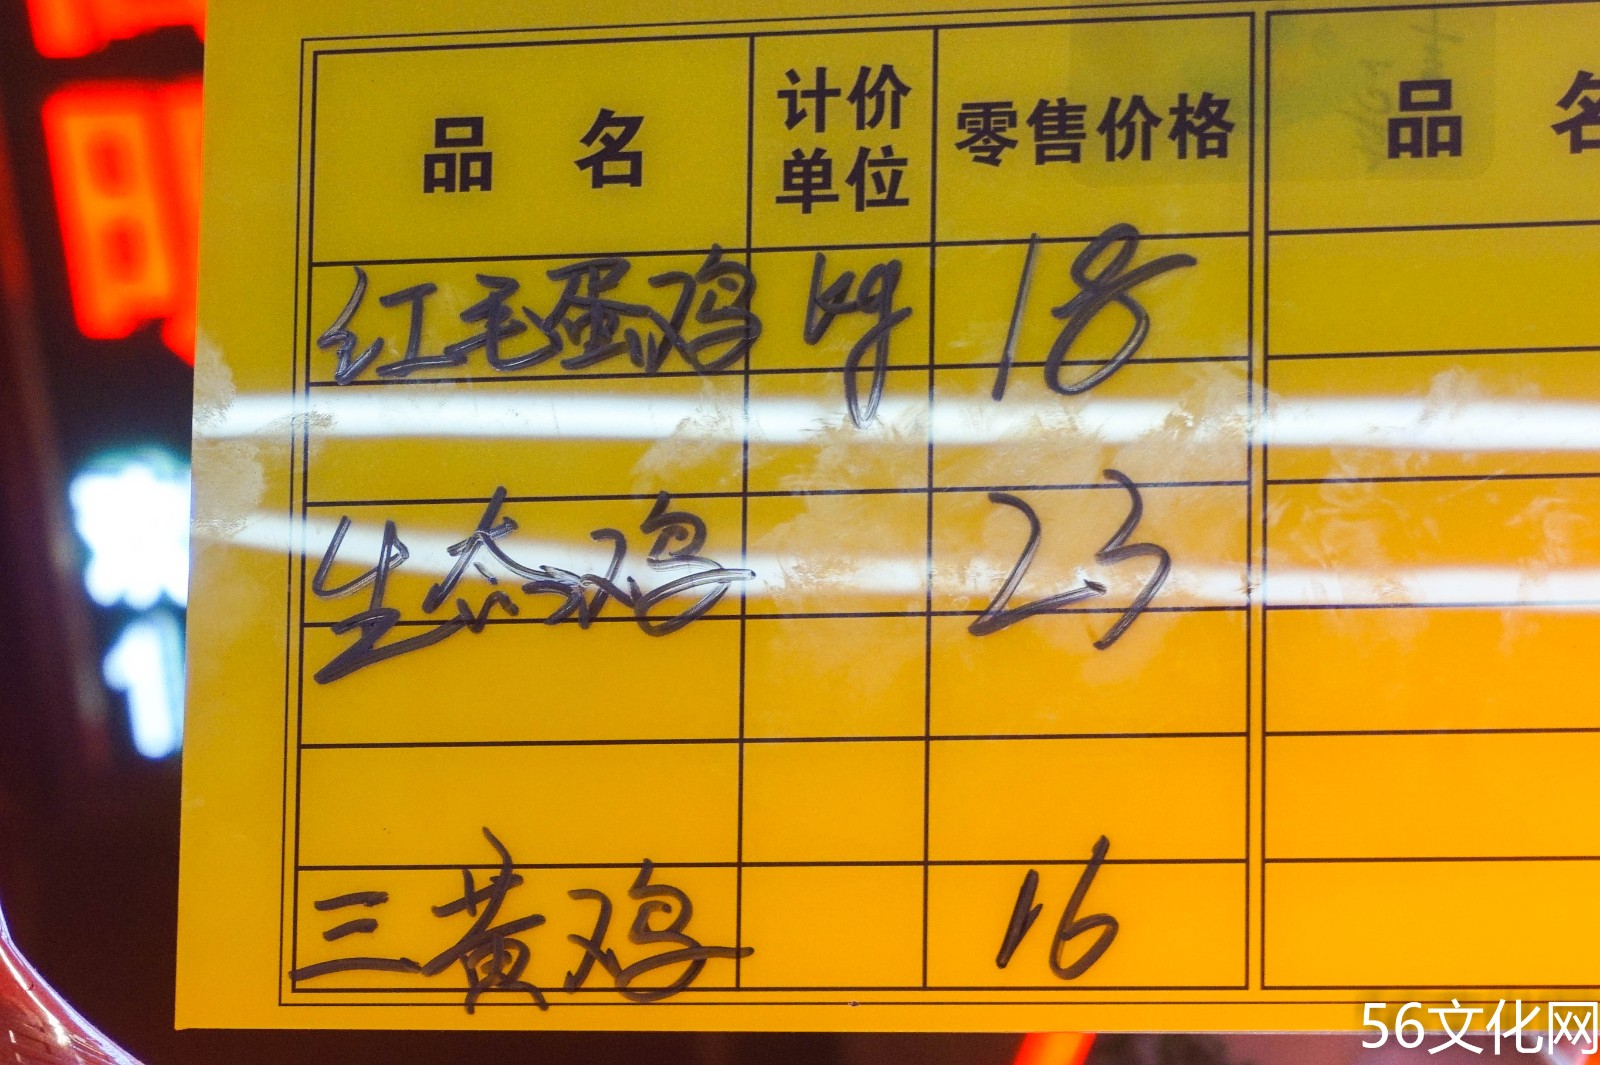 品 名 计价单位 零售价格 品 名
红毛蛋鸡 kg 18
生态鸡 23
三黄鸡 16
56文化网